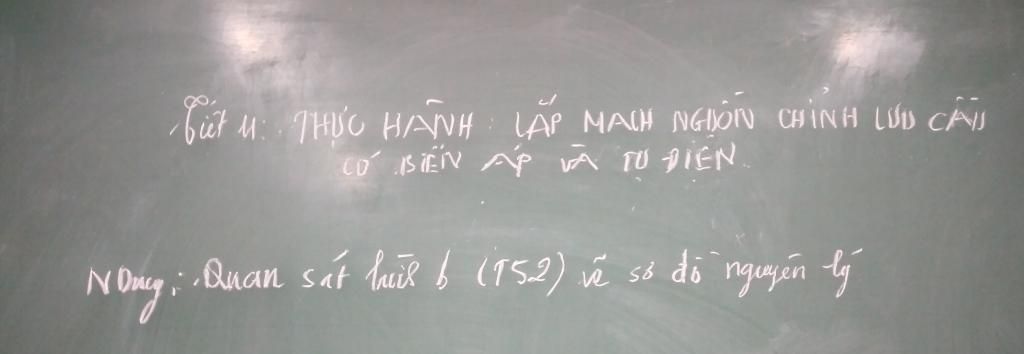 Tiết 11: THỰC HÀNH: LẮP MẠCH NGUỒN CHỈNH LƯU CẦU
CÓ BIẾN ÁP VÀ TỤ ĐIỆN.
NDung: Quan sát hình 6 (T52) vẽ sơ đồ nguyên lý